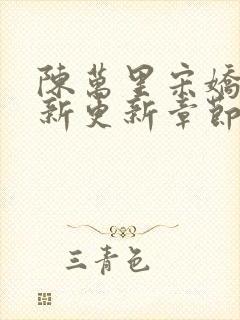 陳萬里宋嬌
新更新章節
三青色